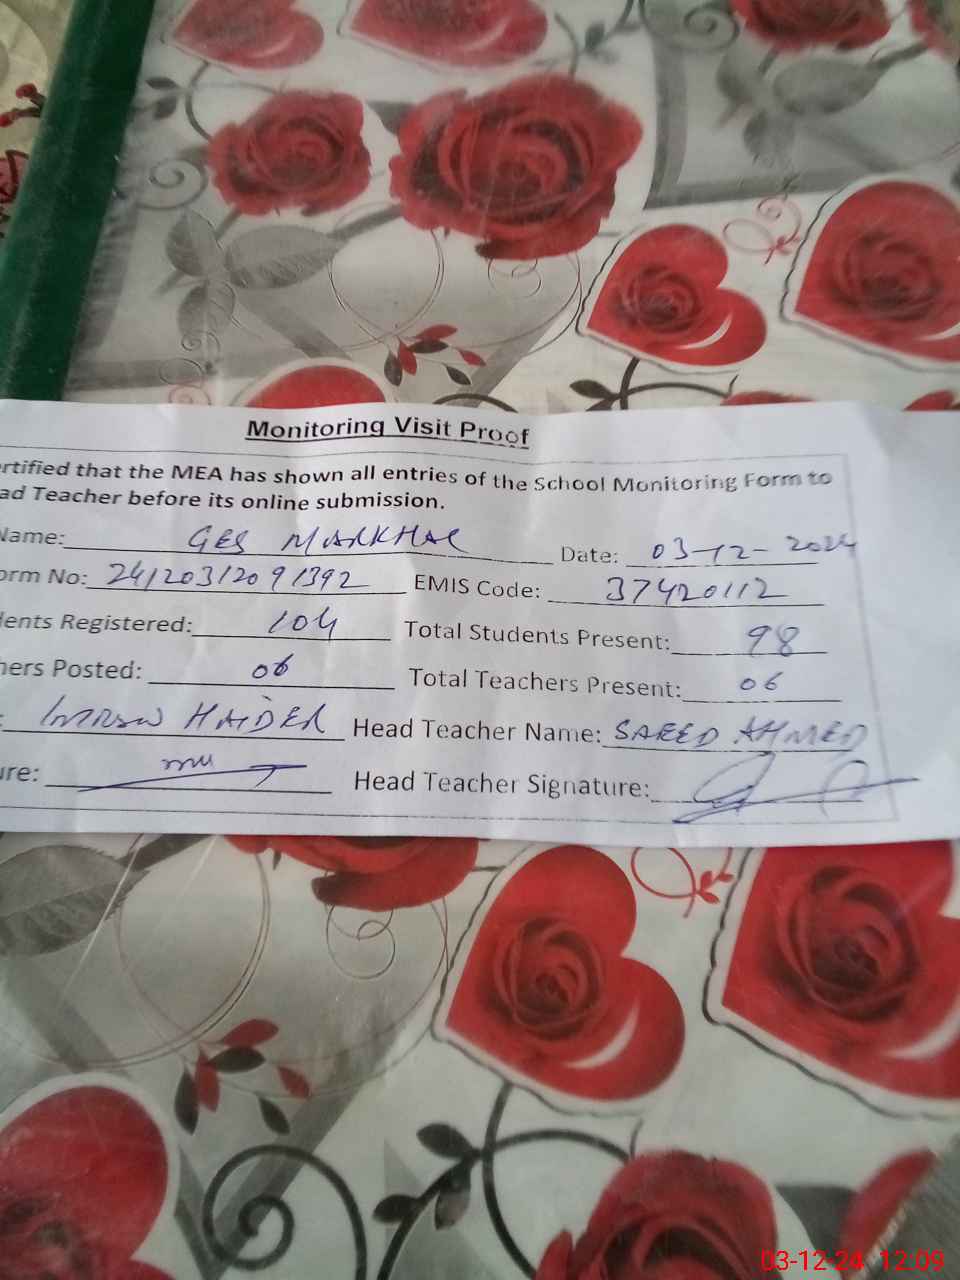 Monitoring Visit Proof
ertified that the MEA has shown all entries of the School Monitoring Form to
ad Teacher before its online submission.
Name: GES MARKHAL Date: 03-12-2024
orm No: 24120312091392 EMIS Code: 37420112
dents Registered: 104 Total Students Present: 98
hers Posted: 06 Total Teachers Present: 06
: HAIDER Head Teacher Name: SAEED AHMED
ure: Head Teacher Signature:
03-12-24 12:09